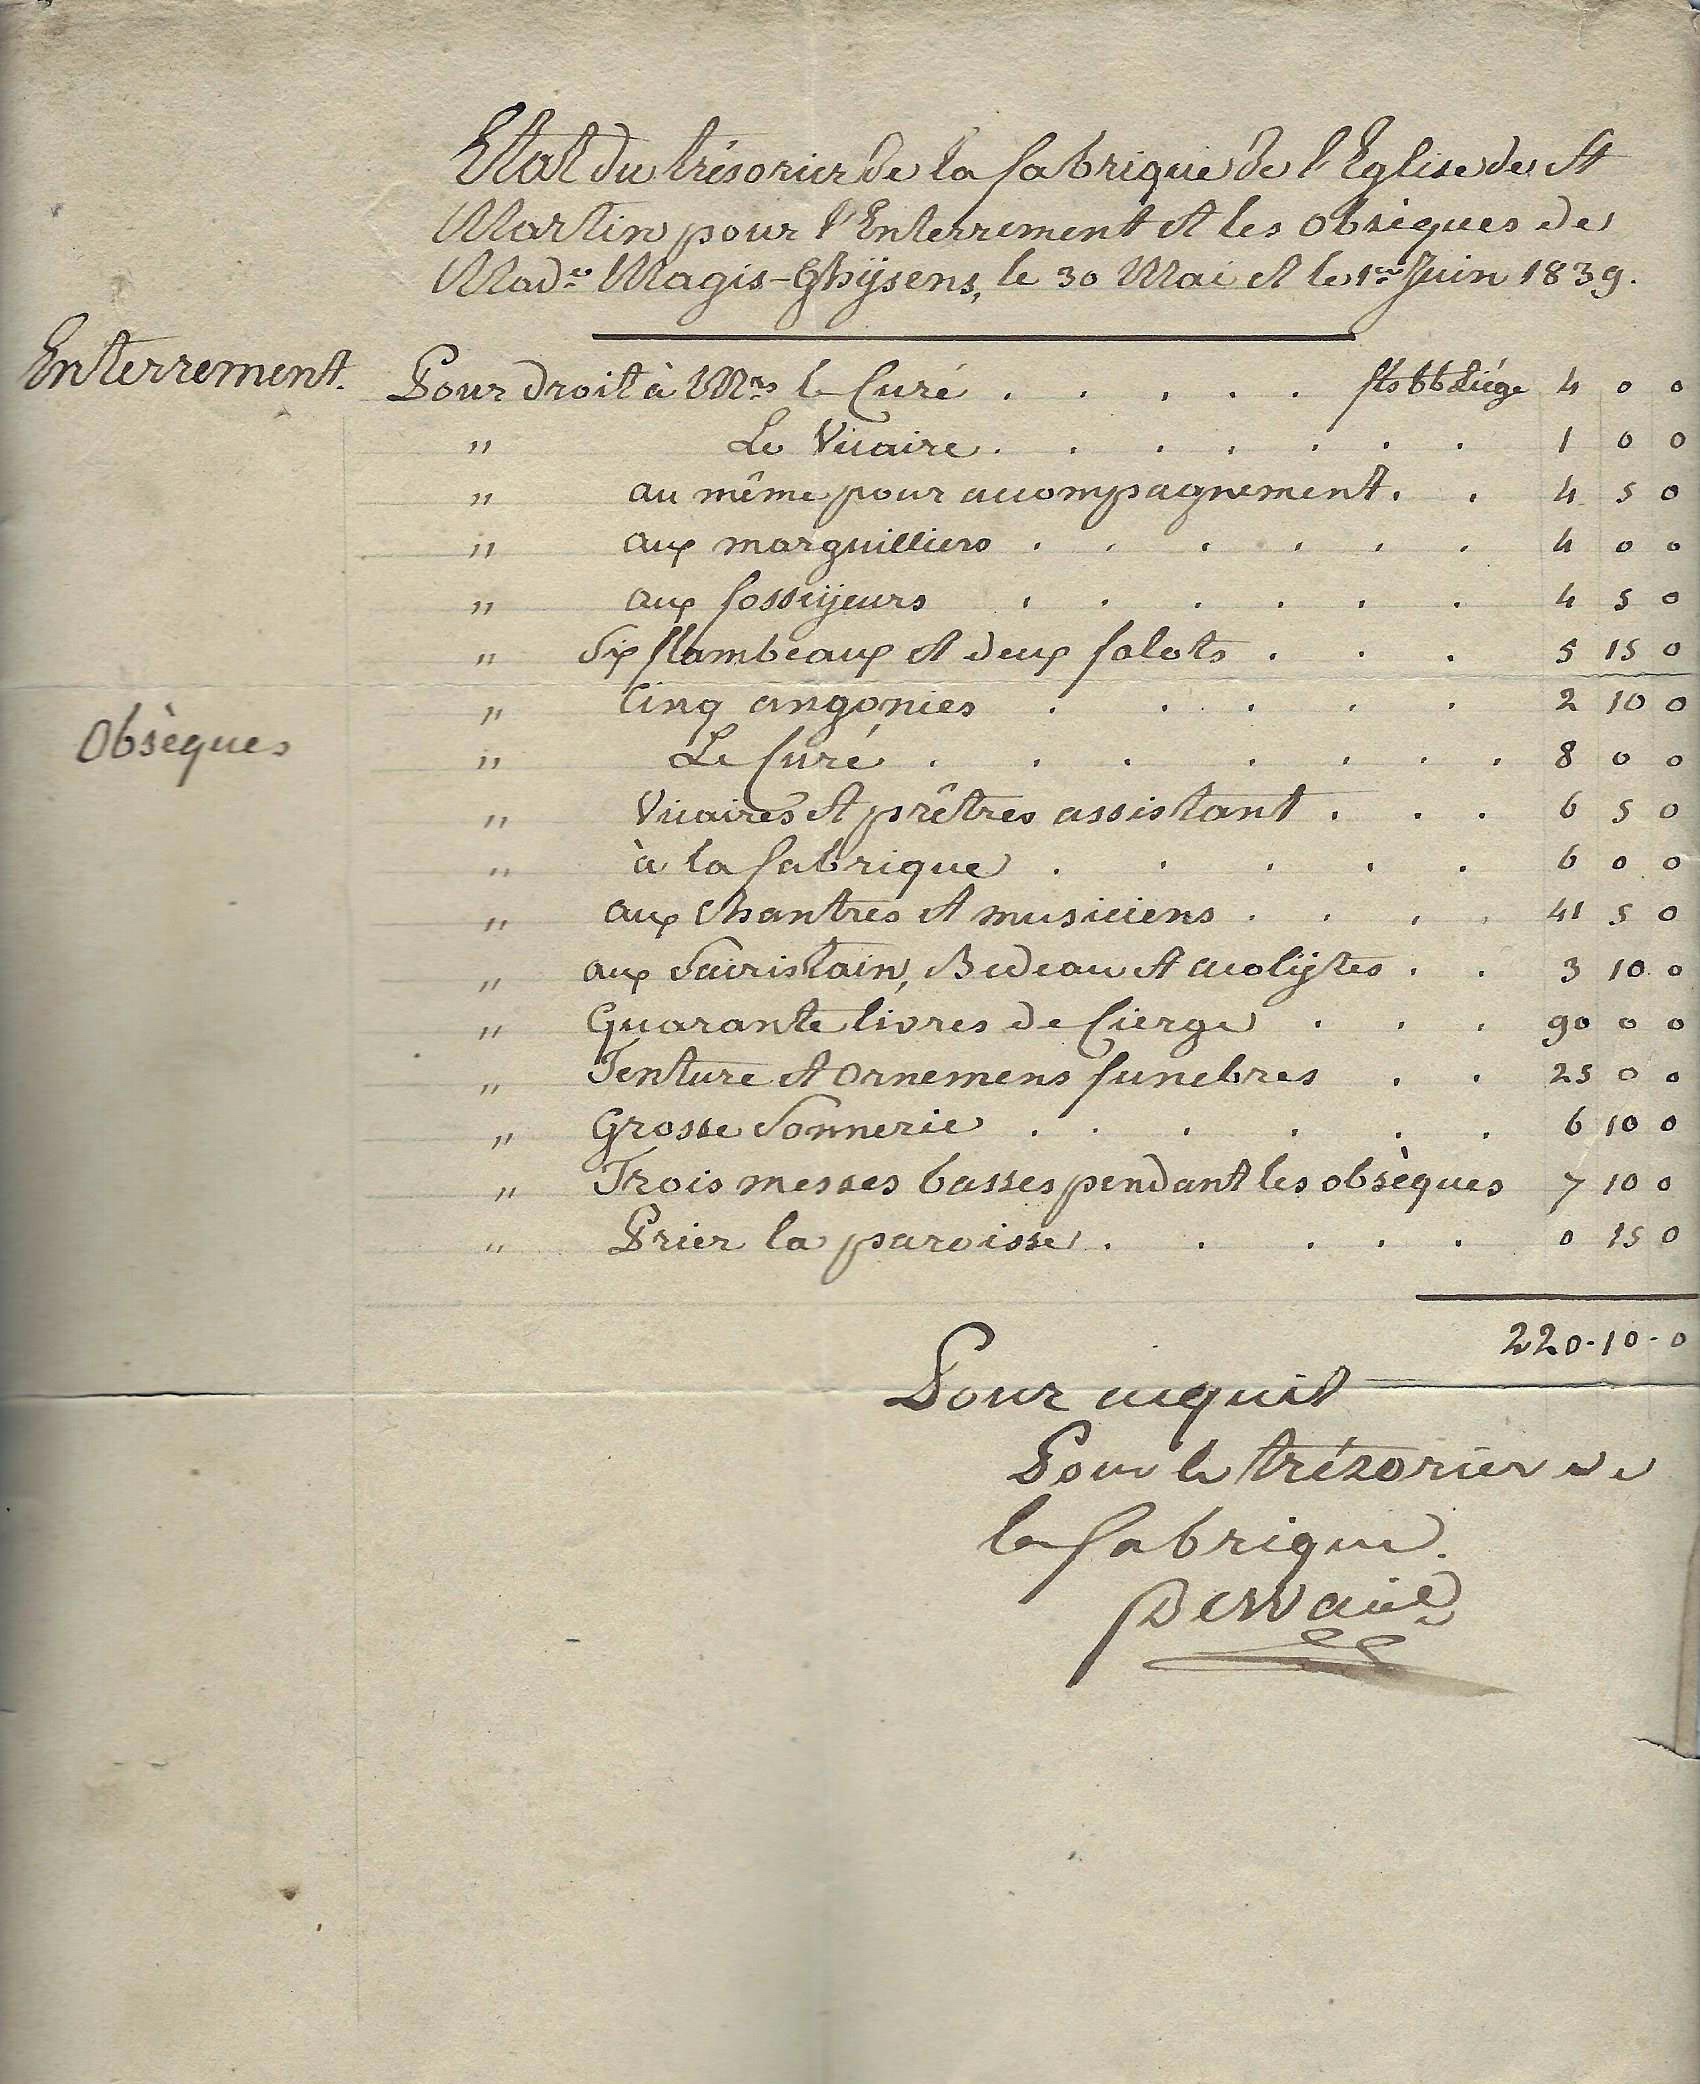 Etat du trésorier de la fabrique de l'Eglise de St
Martin pour l'Enterrement et les obsèques de
Made Magis-Ghÿsens, le 30 Mai et le 1er Juin 1839.
Enterrement. Pour droit à Mrs le Curé . . . . . fls bb Liége 4 0 0
" Le Vicaire . . . . . . . 1 0 0
" au même pour accompagnement . . 4 5 0
" aux marguilliers . . . . . . 4 0 0
" aux fossoÿeurs . . . . . . 4 5 0
" Six flambeaux et deux falots . . . 5 15 0
" Cinq angonies . . . . . 2 10 0
Obsèques " Le Curé . . . . . . . 8 0 0
" Vicaires et prêtres assistant . . . 6 5 0
" à la fabrique . . . . . 6 0 0
" aux Chantres et musiciens . . . . 41 5 0
" aux Sacristain, Bedeau et acolÿtes . . 3 10 0
" Quarante livres de Cierge . . . 90 0 0
" Tenture et ornemens funebres . . 25 0 0
" Grosse Sonnerie . . . . . . 6 10 0
" Trois messes basses pendant les obsèques 7 10 0
" Prier la paroisse . . . . . 0 15 0
220-10-0
Pour acquit
Pour le trésorier de
la fabrique.